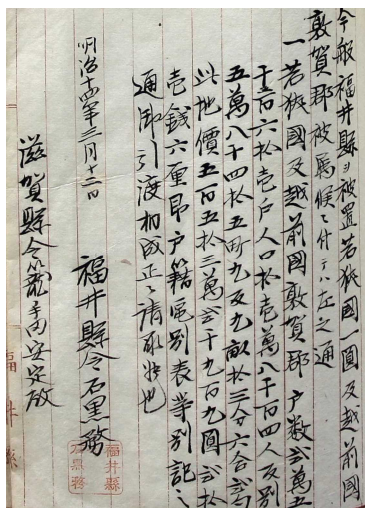 今般福井縣ヲ被置若狹國一圓及越前國
敦賀郡被属候ニ付テハ左之通
一若狹國及越前國敦賀郡戸数弐萬五
千百六拾壱戸人口拾壱萬八千百四人反別
五萬八千四拾五町九反九畝拾三分六合六勺
此地價五百五拾三萬弐千九百九圓弐拾
壱錢六厘昂戸籍區別表等別記之
通御引渡相成正ニ請取候也
明治十四年三月十二日
福井縣令石黒務
滋賀縣令籠手田安定殿
福井縣
石黒務
福井縣